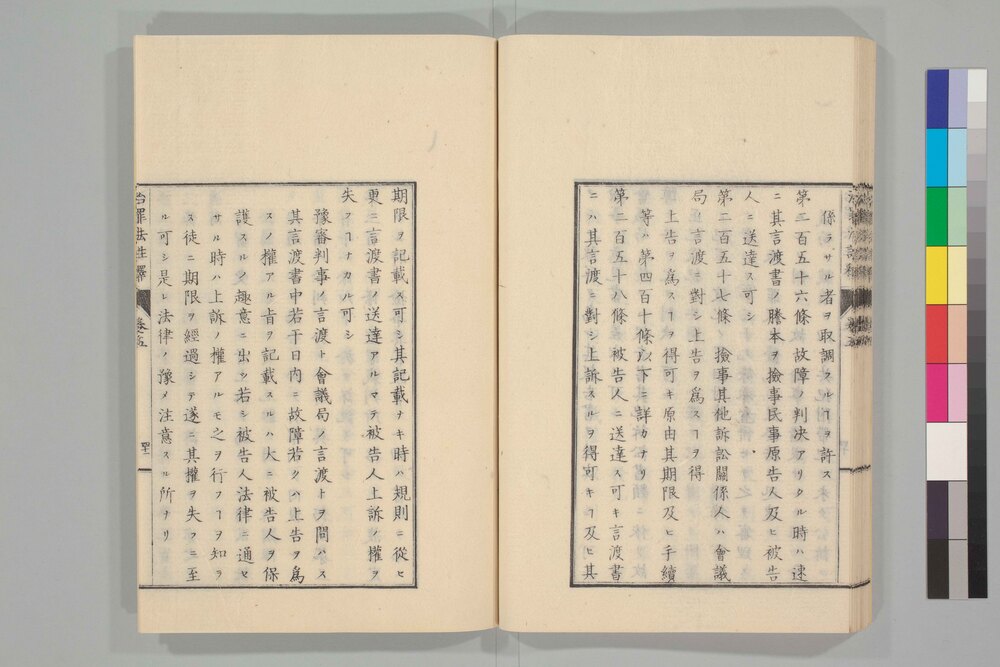 係ラサル者ヲ取調フルヿヲ許ス
第二百五十六條 故障ノ判決アリタル時ハ速
ニ其言渡書ノ謄本ヲ撿事民事原告人及ヒ被告
人ニ送達ス可シ
第二百五十七條 撿事其他訴訟關係人ハ會議
局ノ言渡ニ對シ上告ヲ爲スヿヲ得
上告ヲ爲スヿヲ得可キ原由其期限及ヒ手續
等ハ第四百十條以下ニ詳カナリ
第二百五十八條 被告人ニ送達ス可キ言渡書
ニハ其言渡ニ對シ上訴スルヲ得可キヿ及ヒ其
期限ヲ記載ス可シ其記載ナキ時ハ規則ニ從ヒ
更ニ言渡書ノ送達アルマテ被告人上訴ノ權ヲ
失フヿナカル可シ
豫審判事ノ言渡ト會議局ノ言渡トヲ問ハス
其言渡書中若干日内ニ故障若クハ上告ヲ爲
スノ權アル旨ヲ記載スルハ大ニ被告人ヲ保
護スルノ趣意ニ出ツ若シ被告人法律ニ通セ
サル時ハ上訴ノ權アルモ之ヲ行フヿヲ知ラ
ス徒ニ期限ヲ經過シテ遂ニ其權ヲ失フニ至
ル可シ是レ法律ノ豫メ注意スル所ナリ
治罪法註釋 卷之五